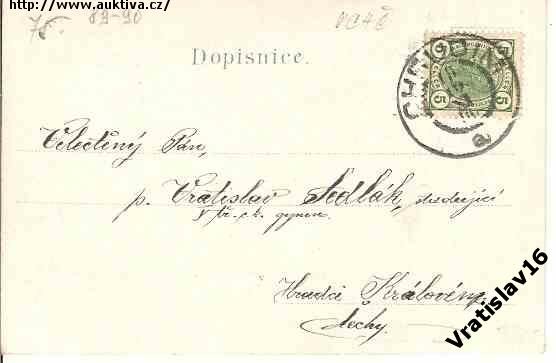 http://www.auktiva.cz/
75.- 89-90
Dopisnice.
5 5
5 5
CHRUDIM
a
Velectěný Pán,
p. Vratislav Sedlák, studující
V tř. c.k. gymn.
Hradci Královém,
Čechy.
Vratislav16